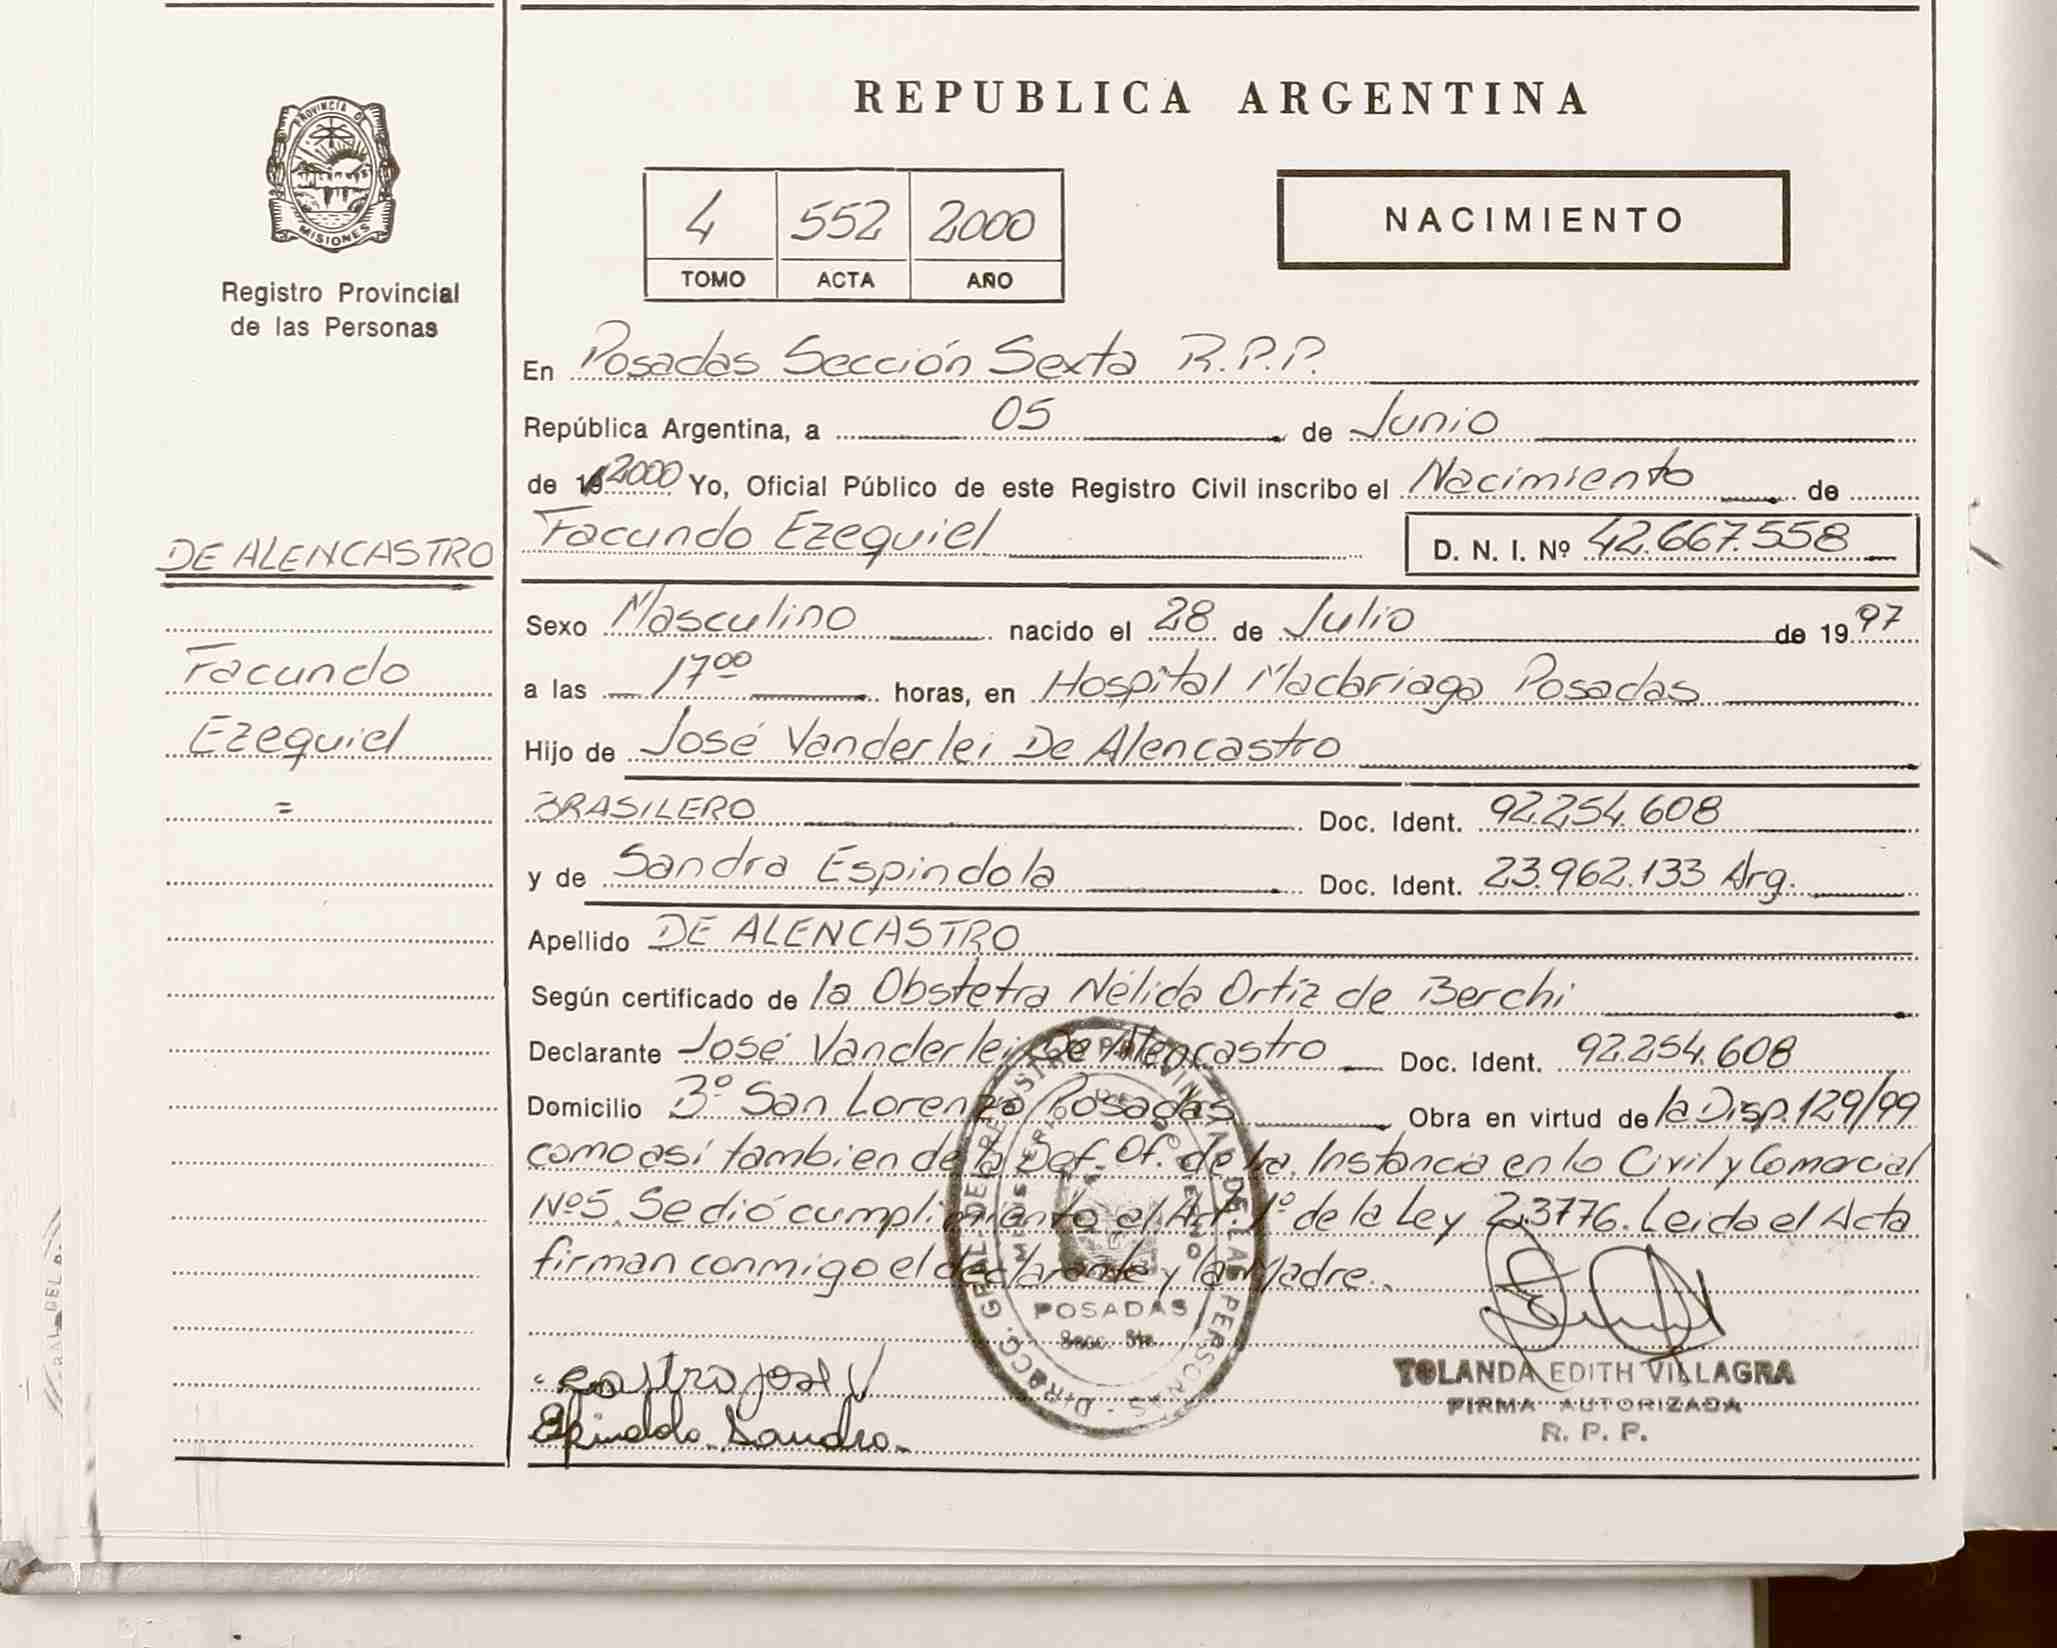 PROVINCIA D
MISIONES
Registro Provincial
de las Personas
DE ALENCASTRO
Facundo
Ezequiel
=
REPUBLICA ARGENTINA
4 552 2000
TOMO ACTA AÑO
NACIMIENTO
En Posadas Sección Sexta R.P.P.
República Argentina, a 05 de Junio
de 19 2000 Yo, Oficial Público de este Registro Civil inscribo el Nacimiento de
Facundo Ezequiel D. N. I. Nº 42.667.558
Sexo Masculino nacido el 28 de Julio de 1997
a las 17 00 horas, en Hospital Madariaga Posadas
Hijo de José Vanderlei De Alencastro
BRASILERO Doc. Ident. 92.254.608
y de Sandra Espindola Doc. Ident. 23.962.133 Arg.
Apellido DE ALENCASTRO
Según certificado de la Obstetra Nélida Ortiz de Berchi
Declarante José Vanderlei De Alencastro Doc. Ident. 92.254.608
Domicilio Bº San Lorenzo Posadas Obra en virtud de la Disp. 129/99
como así tambien de la Def. Of. de 1ra. Instancia en lo Civil y Comercial
Nº5. Se dió cumplimiento al Art. 1º de la Ley 23776. Leida el Acta
firman conmigo el declarante y la Madre.
POSADAS
Secc. 6ta.
castro jose V
Espindola Sandra
YOLANDA EDITH VILLAGRA
FIRMA AUTORIZADA
R. P. P.